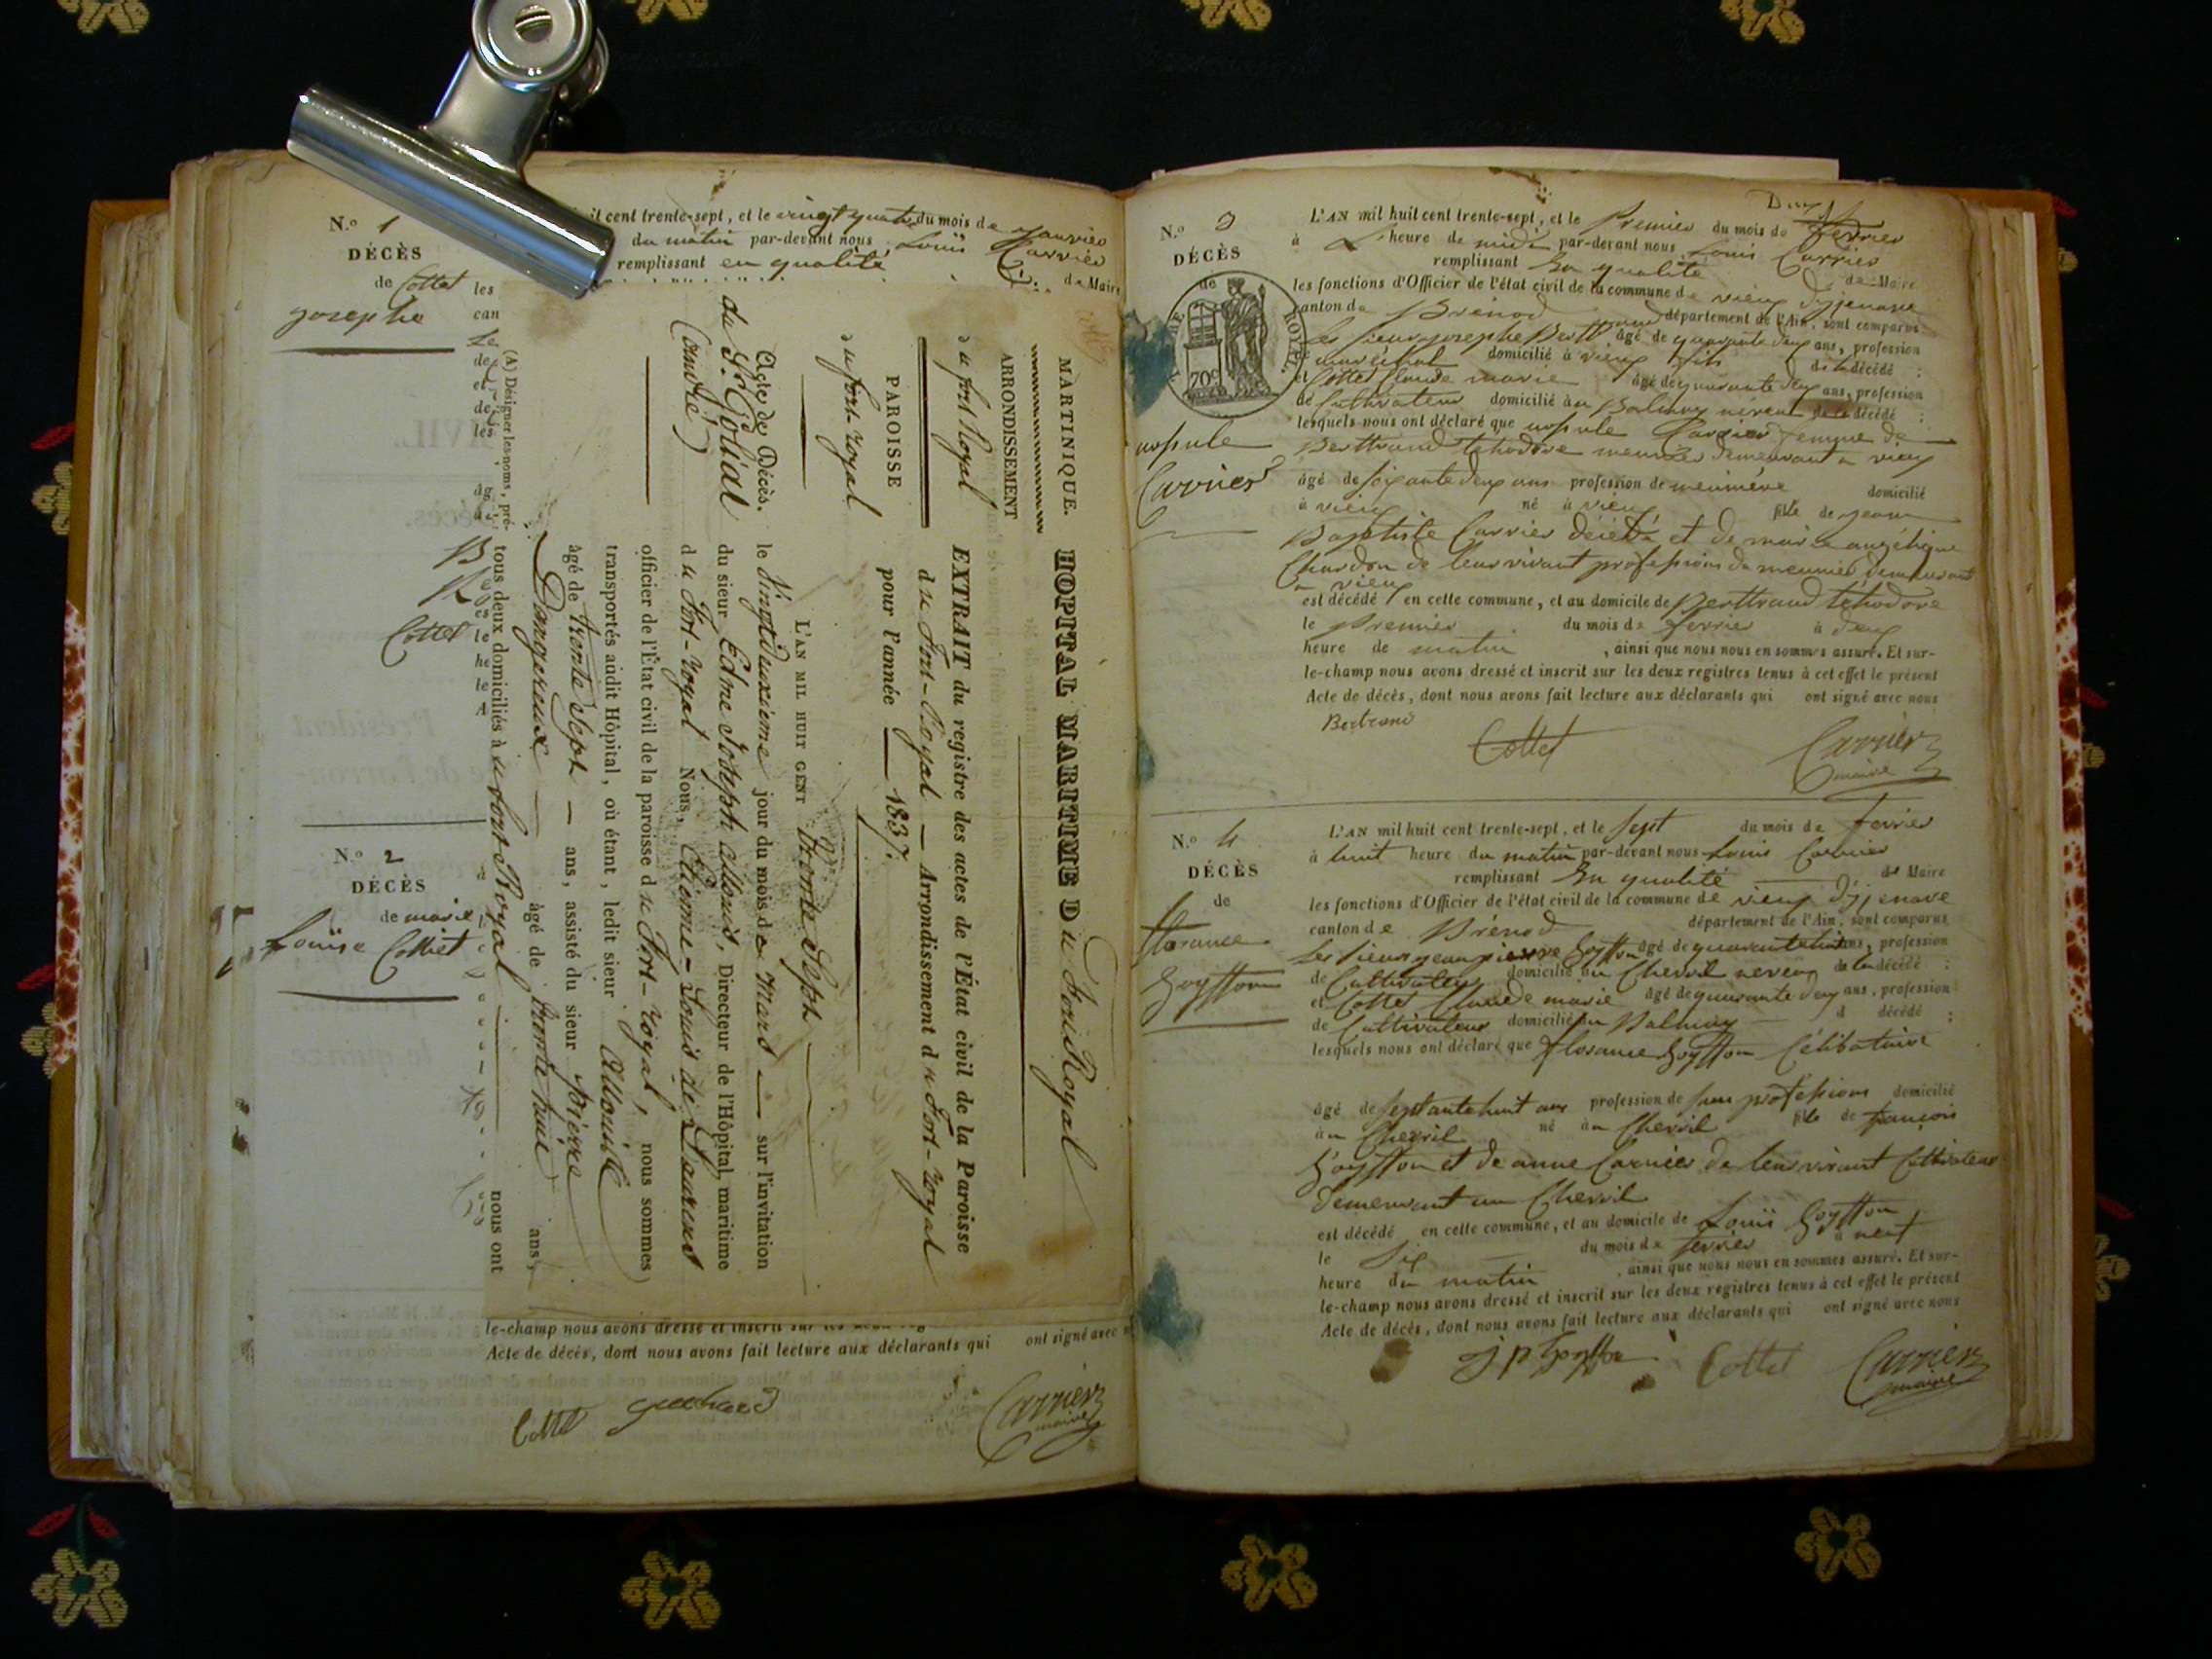 N.o 1
DÉCÈS
de Cottet
josephe
it cent trente-sept, et le vingt quatre du mois de janvier
du matin par-devant nous Louis Carrier
remplissant en qualité de Maire
les
can
(A) Désigner les noms, pré-
Cottet
N.o 2
DÉCÈS
de marie
Louise Colliet
MARTINIQUE.
ARRONDISSEMENT
du fort Royal
PAROISSE
du fort-royal
Acte de Décès.
du Sr. Goliat
(andré)
HOPITAL MARITIME Du Fort Royal
EXTRAIT du registre des actes de l'État civil de la Paroisse
du Fort-Royal — Arrondissement du Fort-royal
pour l'année — 1837.
L'AN MIL HUIT CENT trente Sept
le vingtdeuxieme jour du mois de Mars — sur l'invitation
du sieur Edne Joseph allouis, Directeur de l'Hôpital maritime
du Fort-royal Nous, Etienne-Louis de Laurent
officier de l'État civil de la paroisse du Fort-royal, nous sommes
transportés audit Hôpital, où étant, ledit sieur
âgé de trente Sept — ans, assisté du sieur Pierre
Dangereux — âgé de trente huit ans,
tous deux domiciliés à u fort Royal — nous ont
le-champ nous avons dressé et inscrit sur les deux reg
Acte de décès, dont nous avons fait lecture aux déclarants qui ont signé avec n
Cottet
Carrier
maire
N.o 3
DÉCÈS
de
TIMBRE ROYAL.
70c
ursule
Carrier
L'AN mil huit cent trente-sept, et le Premier du mois de fevrier
à heure de midi par-devant nous Louis Carrier
remplissant En qualité de Maire
les fonctions d'Officier de l'état civil de la commune de vieux d'jzenave
canton de Brénod département de l'Ain, sont comparus
les sieurs josephe Berttrand âgé de quarante deux ans, profession
de maréchal domicilié à vieux fils de la décédé ;
et Cottet Claude marie âgé de quarante deux ans, profession
de Cultivateur domicilié au Balmay neveu de la décédé ;
lesquels nous ont déclaré que ursule Carrier femme de
Berttrand tehodore meunier demeurant a vieux
âgé de soixante deux ans profession de meunière domicilié
à vieux né à vieux fille de jean
Baptiste Carrier décédé et de marie angélique
Chardon de leur vivant profession de meunier demeurant
a vieux
est décédé en cette commune, et au domicile de Berttrand tehodore
le Premier du mois de fevrier à deux
heure de matin, ainsi que nous nous en sommes assuré. Et sur-
le-champ nous avons dressé et inscrit sur les deux registres tenus à cet effet le présent
Acte de décès, dont nous avons fait lecture aux déclarants qui ont signé avec nous
Bertrand
Cottet
Carrier
maire
N.o 4
DÉCÈS
de
florance
Goyffon
L'AN mil huit cent trente-sept, et le Sept du mois de fevrier
à huit heure du matin par-devant nous Louis Carrier
remplissant En qualité de Maire
les fonctions d'Officier de l'état civil de la commune de vieux d'jzenave
canton de Brénod département de l'Ain, sont comparus
Les sieurs jean pierre Goyffon âgé de quarante huit ans, profession
de Cultivateur domicilié au Chevril neveu de la décédé ;
et Cottet Claude marie âgé de quarante deux ans, profession
de Cultivateur domicilié au Balmay d décédé ;
lesquels nous ont déclaré que florance Goyffon Célibataire
âgé de septante huit ans profession de sans profession domicilié
à au Chevril né au Chevril fille de françois
Goyffon et de anne Carrier de leur vivant Cultivateur
demeurant au Chevril
est décédé en cette commune, et au domicile de Louis Goyffon
le Six du mois de fevrier à neuf
heure du matin, ainsi que nous nous en sommes assuré. Et sur-
le-champ nous avons dressé et inscrit sur les deux registres tenus à cet effet le présent
Acte de décès, dont nous avons fait lecture aux déclarants qui ont signé avec nous
j p Goyffon
Cottet
Carrier
maire